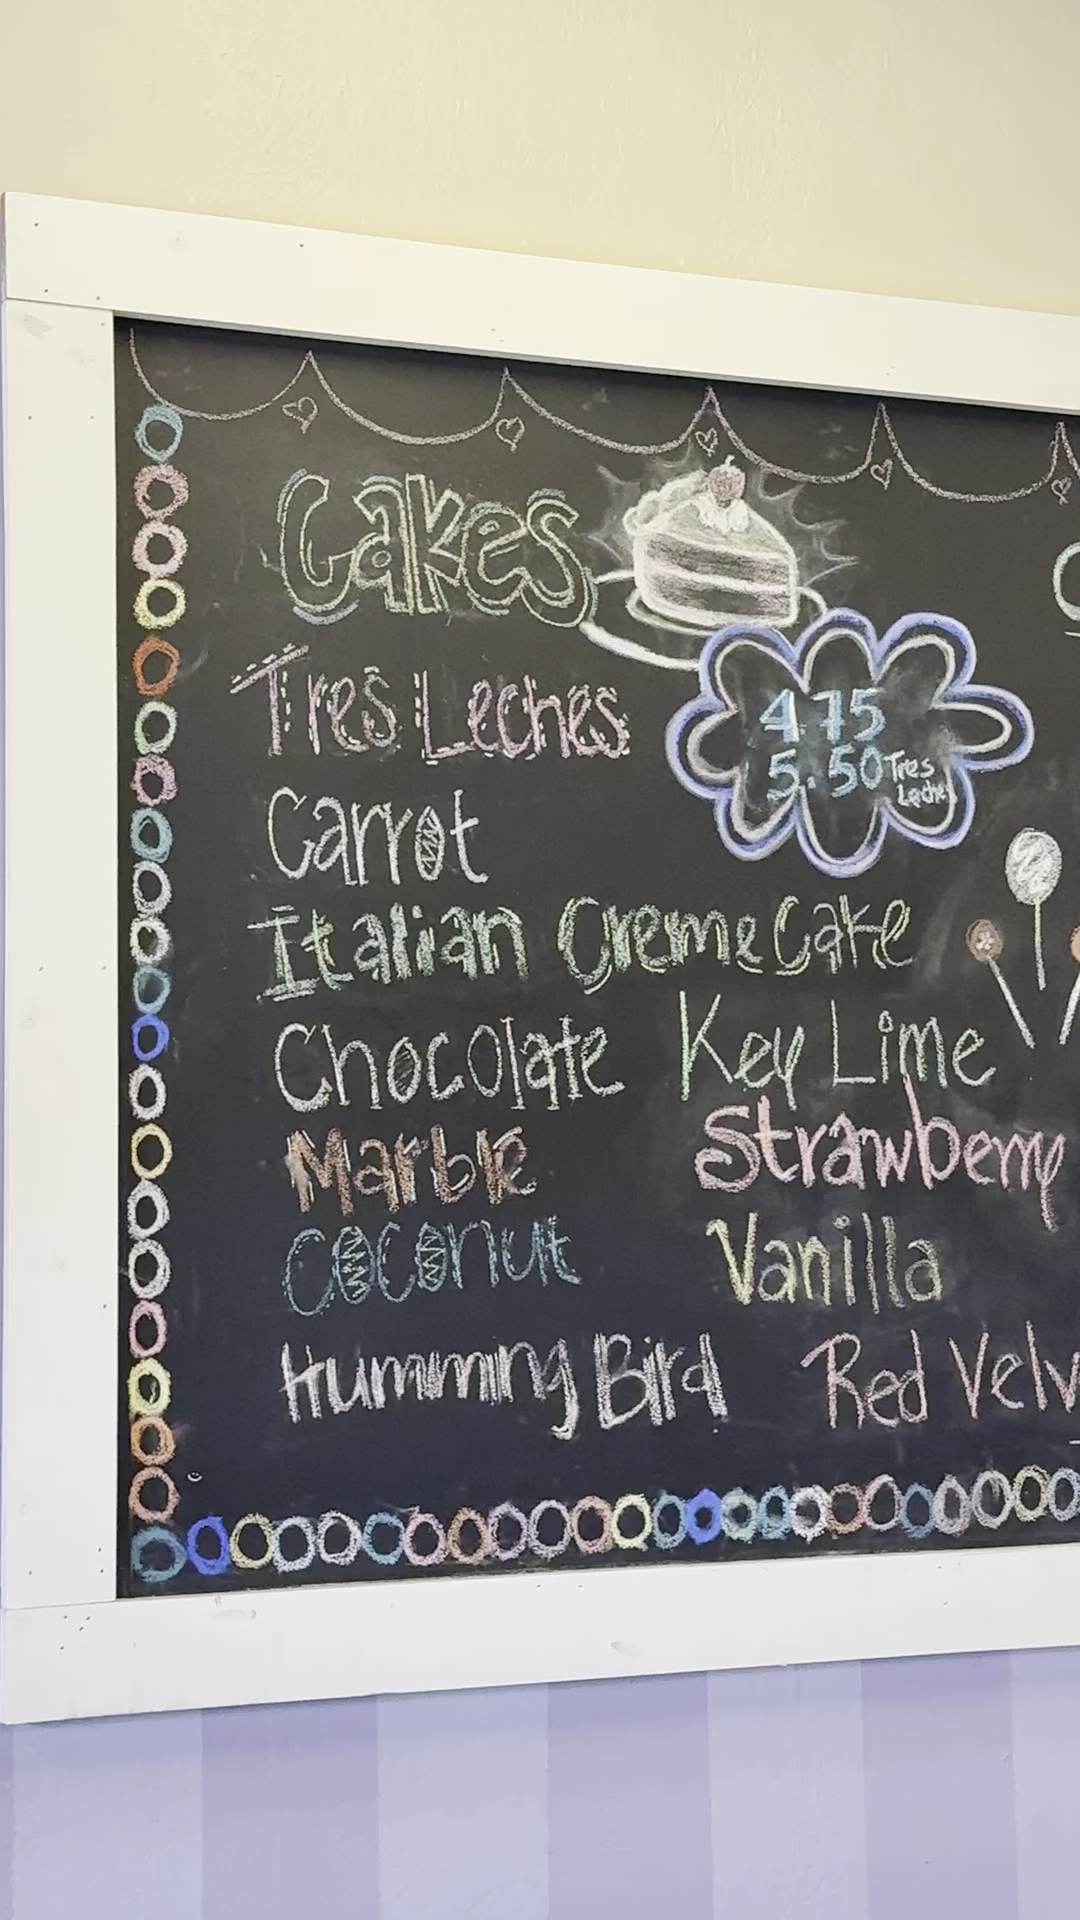 Cakes
Tres Leches
4.75
5.50 Tres
Leche
Carrot
Italian Creme Cake
Chocolate Key Lime
Marble Strawberry
Coconut Vanilla
Humming Bird Red Velv